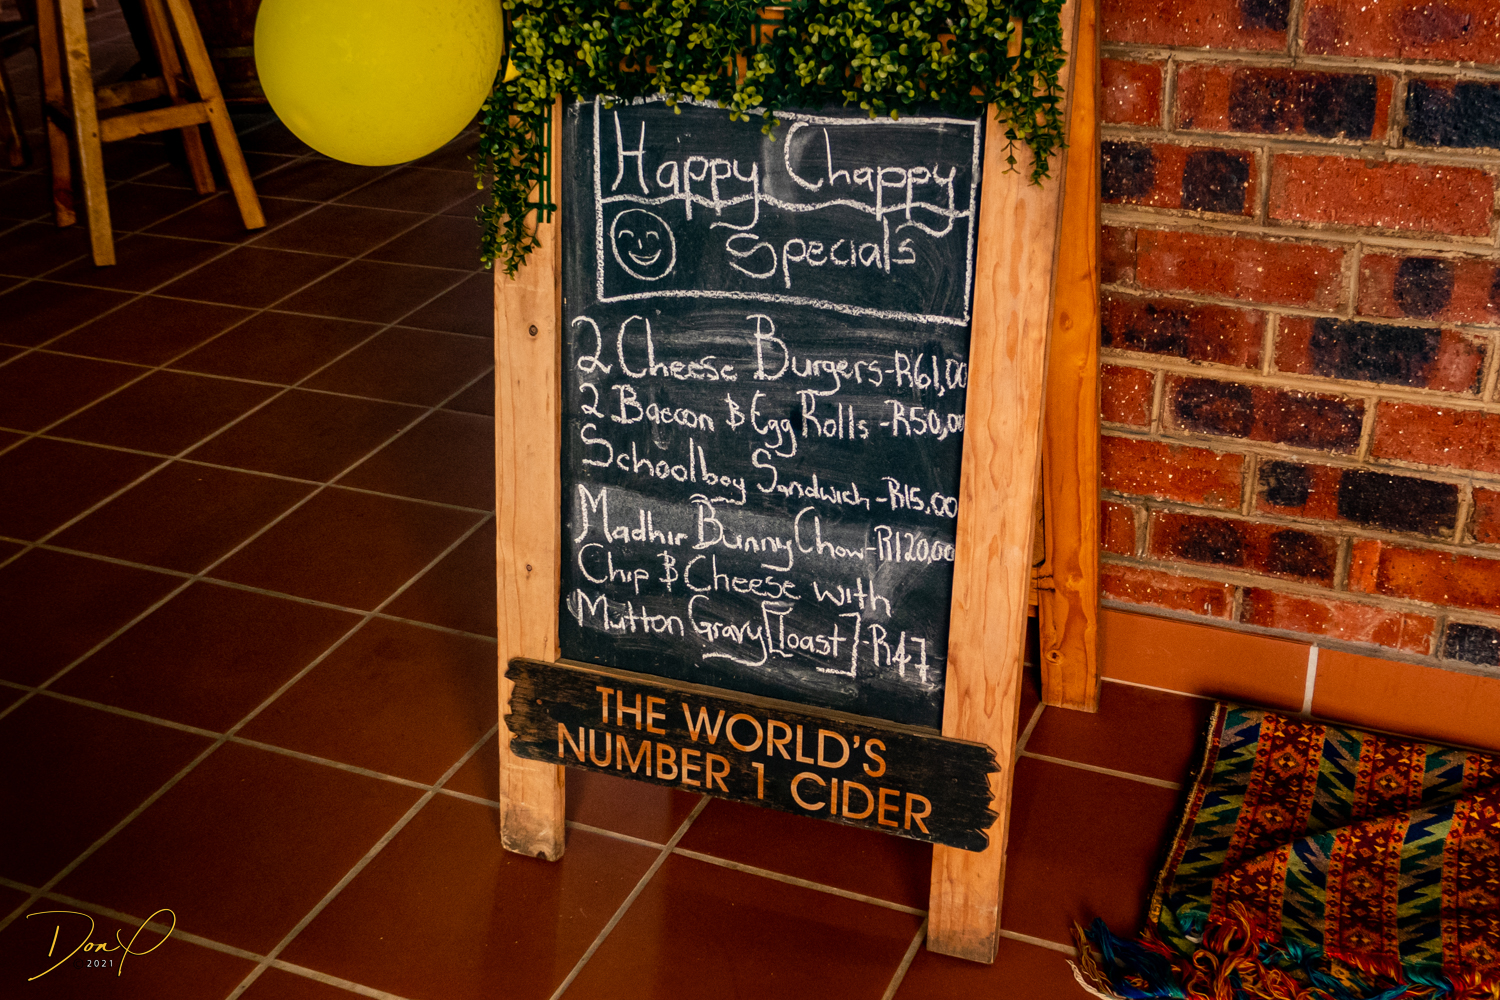 Happy Chappy
Specials
2 Cheese Burgers-R61,00
2 Bacon & Egg Rolls -R50,00
Schoolboy Sandwich -R15,00
Madhir Bunny Chow-R120,00
Chip & Cheese with
Mutton Gravy [Toast]-R47
THE WORLD'S
NUMBER 1 CIDER
Don P
2021